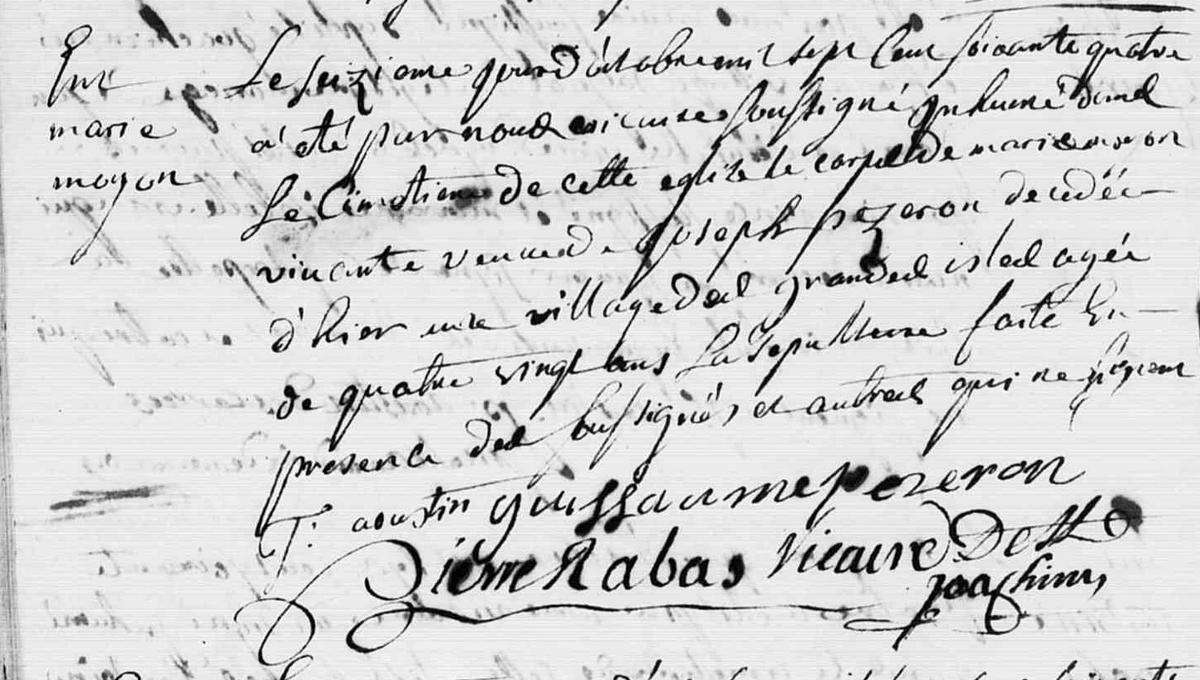 Ent
marie
moyon
Le seizieme jour d'octobre mil sept cent soixante quatre
a été par nous vicaire soussigné Inhumé dans
Le Cimetiere de cette eglise le corps de marie moyon
vivante veuve de joseph pezeron decedée
d'hier au village des grandes isles agée
de quatre vingt ans La sepulture faite En
presence des soussignés et autres qui ne signent
T: aoustin guillaume pezeron
Pierre Rabas Vicaire De St
joachim